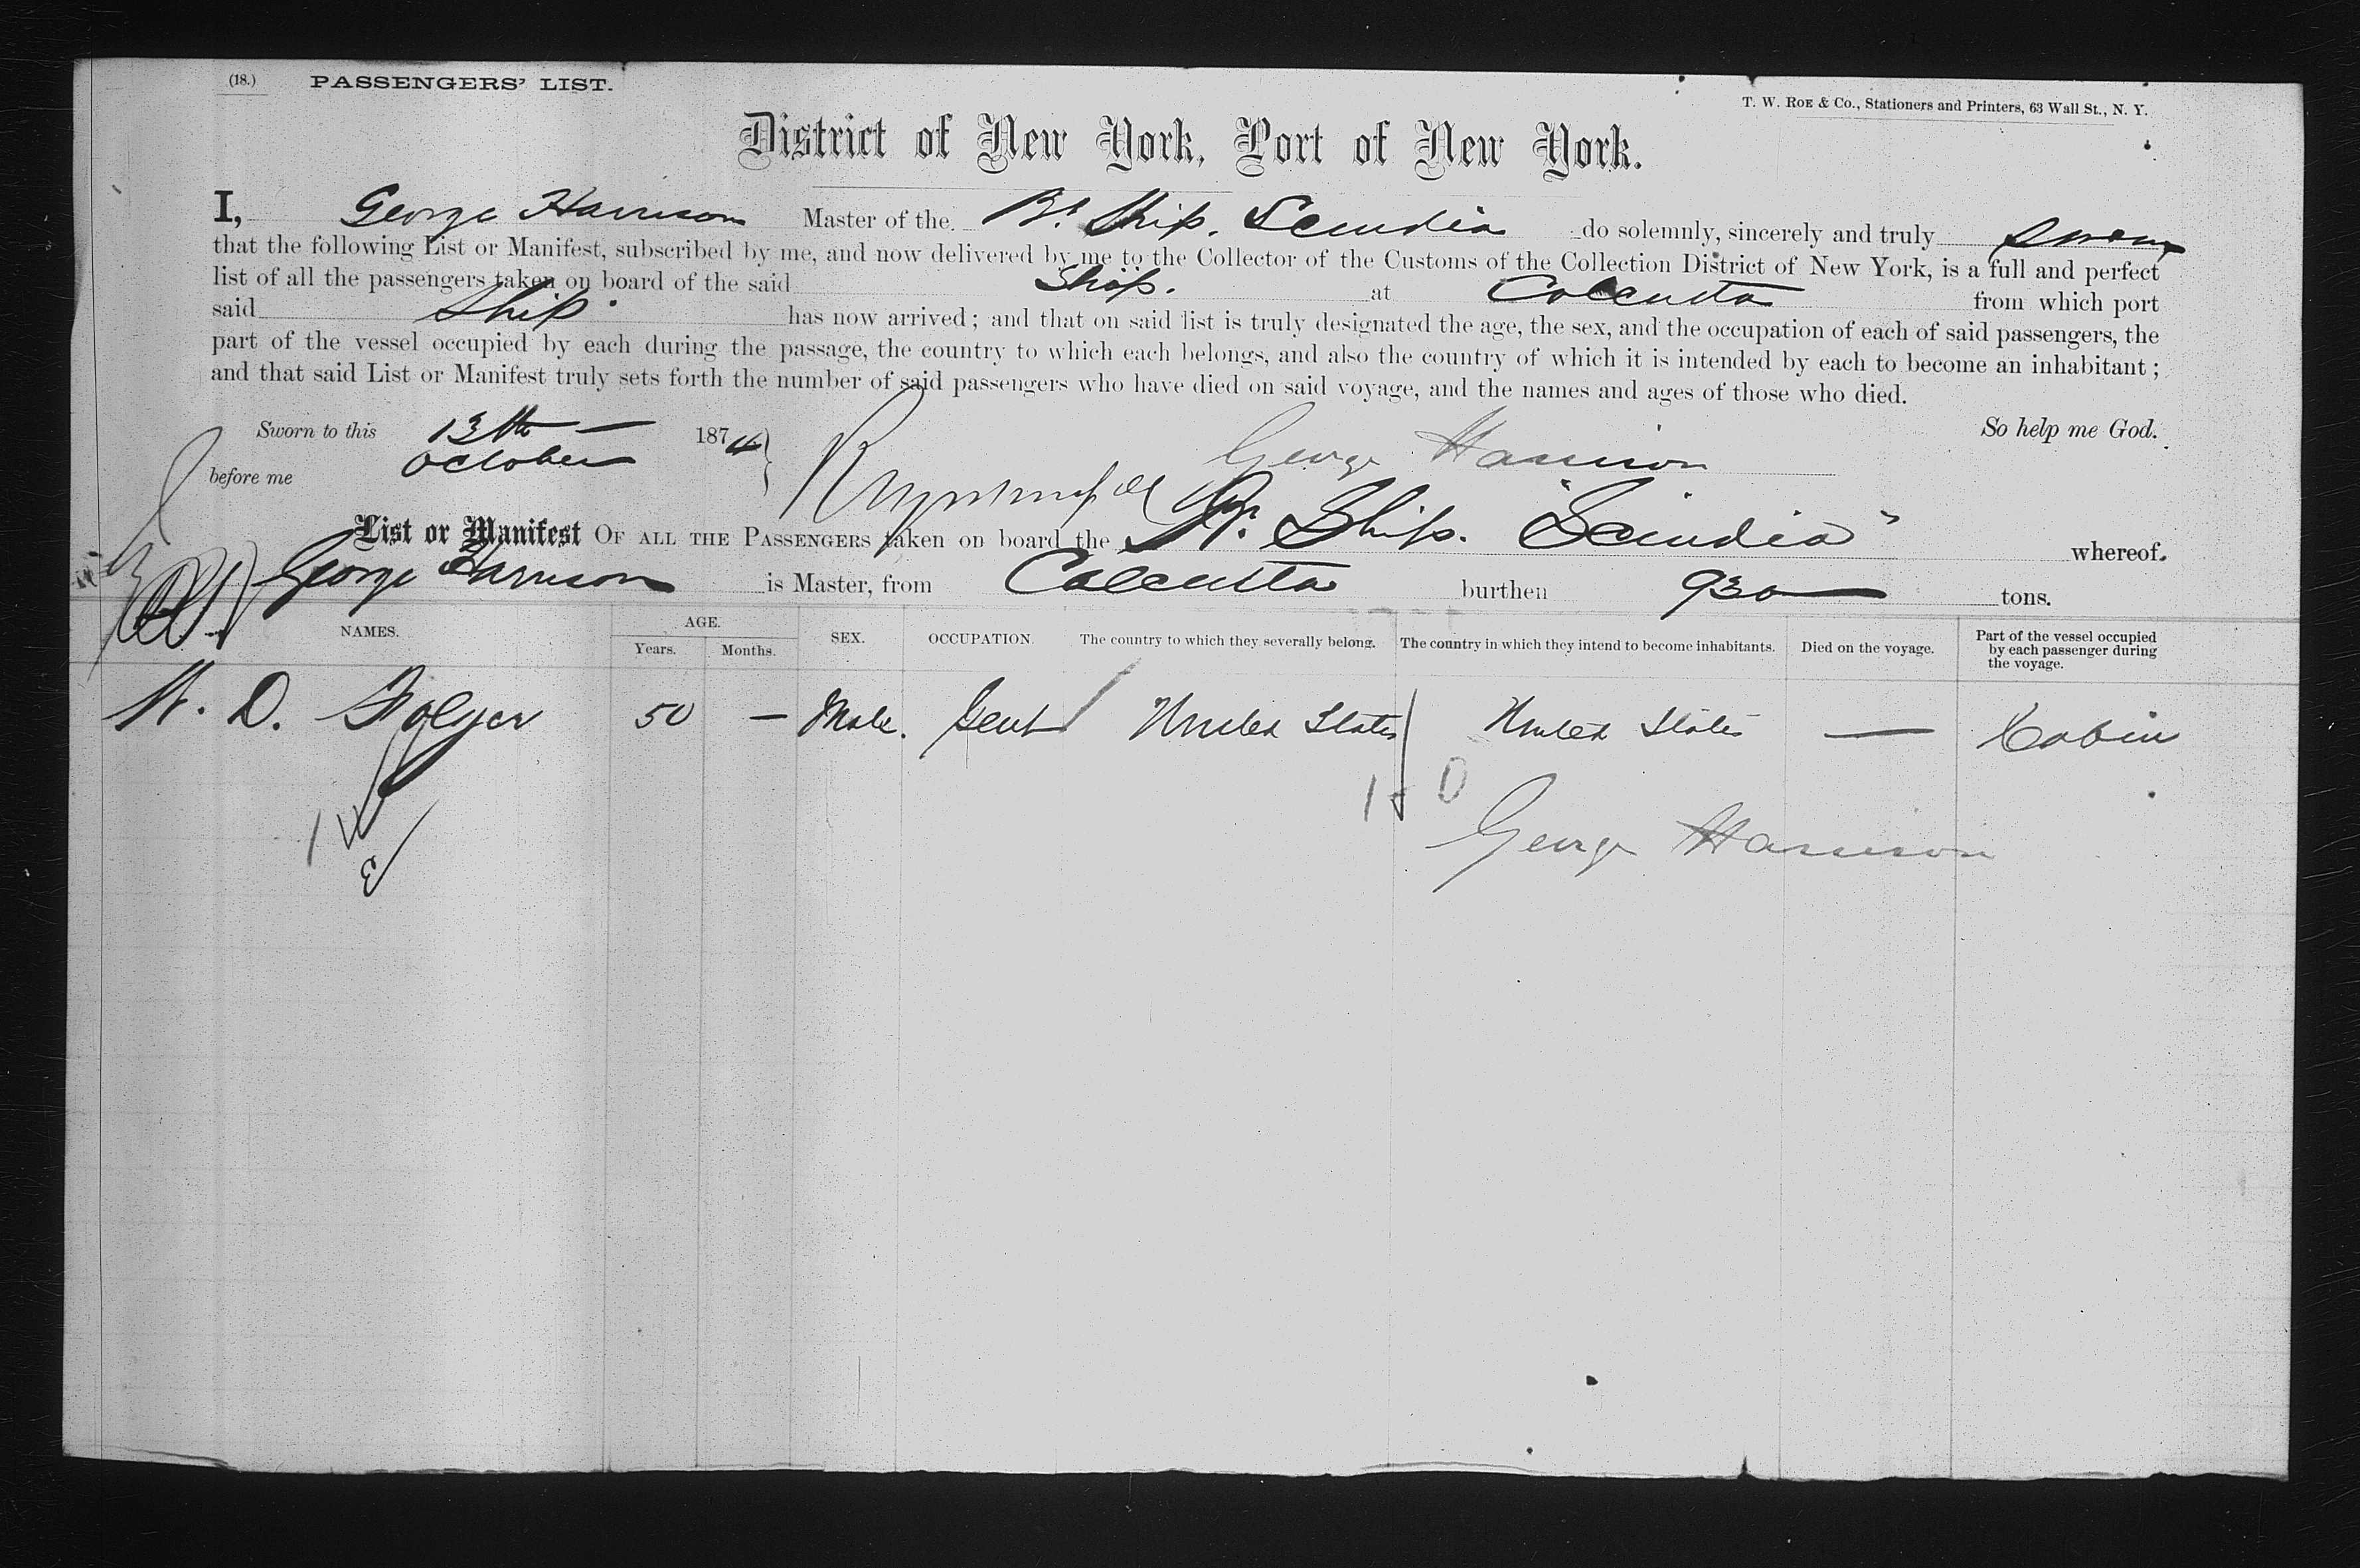 (18.) PASSENGERS' LIST.
T. W. ROE & Co., Stationers and Printers, 63 Wall St., N. Y.
District of New York, Port of New York.
I, George Harrison Master of the Br. Ship. Scindia do solemnly, sincerely and truly swear
that the following List or Manifest, subscribed by me, and now delivered by me to the Collector of the Customs of the Collection District of New York, is a full and perfect
list of all the passengers taken on board of the said Ship. at Calcutta from which port
said Ship has now arrived; and that on said list is truly designated the age, the sex, and the occupation of each of said passengers, the
part of the vessel occupied by each during the passage, the country to which each belongs, and also the country of which it is intended by each to become an inhabitant;
and that said List or Manifest truly sets forth the number of said passengers who have died on said voyage, and the names and ages of those who died.
Sworn to this 13th 1874 So help me God.
before me October George Harrison
List or Manifest OF ALL THE PASSENGERS taken on board the Br. Ship. "Scindia" whereof
George Harrison is Master, from Calcutta burthen 930 tons.
NAMES. AGE. Years. Months. SEX. OCCUPATION. The country to which they severally belong. The country in which they intend to become inhabitants. Died on the voyage. Part of the vessel occupied by each passenger during the voyage.
D. Folger 50 — Male. Gent United States United States — Cabin
1 0
George Harrison
1